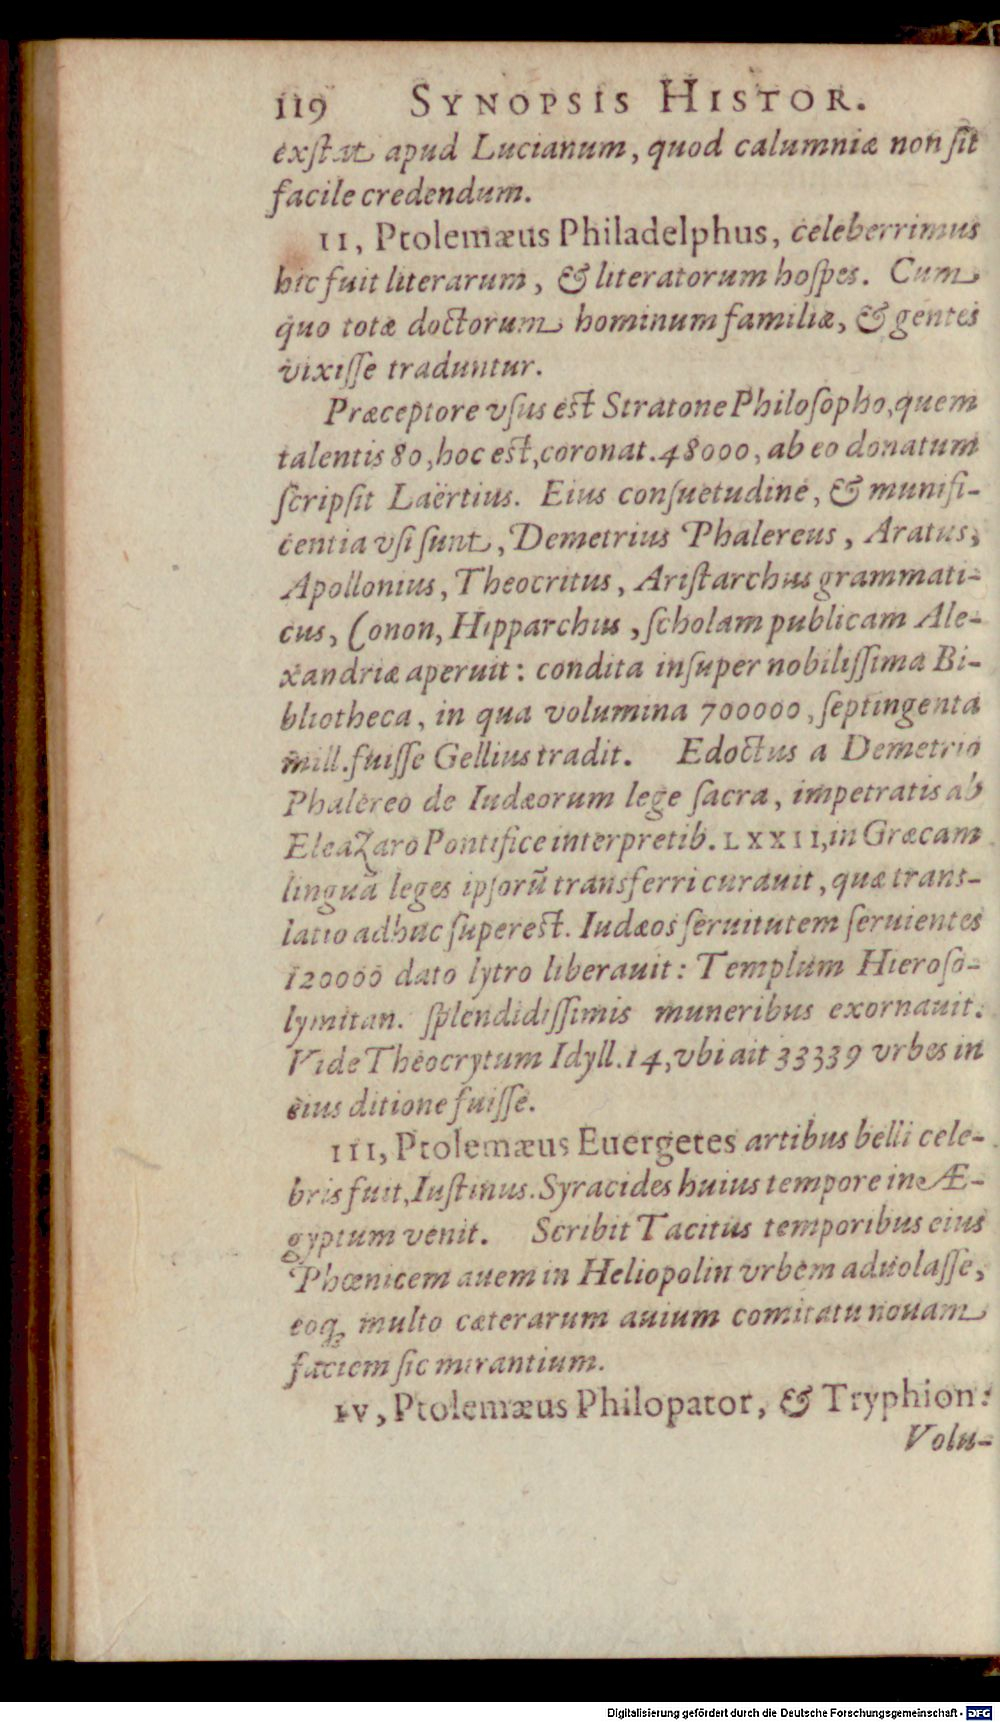 119 SYNOPSIS HISTOR.
exſtat apud Lucianum, quod calumniæ non ſit
facile credendum.
II, Ptolemæus Philadelphus, celeberrimus
hic fuit literarum, & literatorum hoſpes. Cum
quo totæ doctorum hominum familiæ, & gentes
vixiſſe traduntur.
Præceptore vſus est Stratone Philoſopho, quem
talentis 80, hoc est, coronat. 48000, ab eo donatum
ſcripſit Laërtius. Eius conſuetudine, & munifi-
centia vſi ſunt, Demetrius Phalereus, Aratus,
Apollonius, Theocritus, Ariſtarchus grammati-
cus, Conon, Hipparchus, ſcholam publicam Ale-
xandriæ aperuit: condita inſuper nobiliſſima Bi-
bliotheca, in qua volumina 700000, ſeptingenta
mill. fuiſſe Gellius tradit. Edoctus a Demetrio
Phalereo de Iudæorum lege ſacra, impetratis ab
Eleazaro Pontifice interpretib. LXXII, in Græcam
linguā leges ipſorū transferri curauit, quæ trans-
latio adhuc ſuperest. Iudæos ſeruitutem ſeruientes
120000 dato lytro liberauit: Templum Hieroſo-
lymitan. ſplendidiſſimis muneribus exornauit.
Vide Theocrytum Idyll. 14, vbi ait 33339 vrbes in
eius ditione fuiſſe.
III, Ptolemæus Euergetes artibus belli cele-
bris fuit, Iuſtinus. Syracides huius tempore in Æ-
gyptum venit. Scribit Tacitus temporibus eius
Phœnicem auem in Heliopolin vrbem aduolaſſe,
eoq; multo cæterarum auium comitatu nouam
faciem ſic mirantium.
IV, Ptolemæus Philopator, & Tryphion:
Volu-
Digitalisierung gefördert durch die Deutsche Forschungsgemeinschaft - DFG